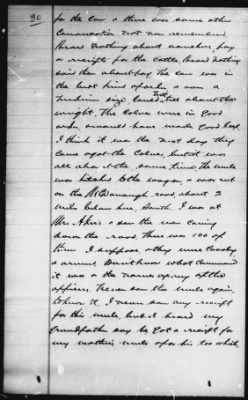 30
for the cow & there was some other
Conversation I do not remember.
Heard nothing about
or receipt for the cattle, Heard nothing
said then about pay. The cow was in
the best kind of order, & was a
medium size, about
weight. The Calves were in Good
order, & would have made Good
I think it was the next day they
came & got the Calves, but it was
all about the same time, the mule
was hitched to the wagon, & was out
on the McDonaugh road about 2
miles below here, South. I was at
Mrs & saw the men coming
down the road. There was 100 of
them I suppose & they were
& armed. Don't know what command
it was or the names of any of the
officers. Never saw the mule again,
to know it. I never saw any receipt
for this mule, but I heard my
Grandfather say he got a receipt for
my mother's mule & for his too which